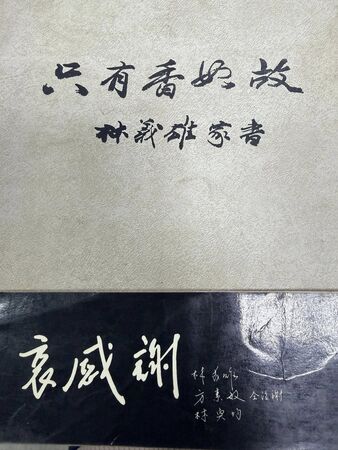 只有香如故
林義雄家書
哀感謝
林義雄
方素敏 仝泣謝
林奐均